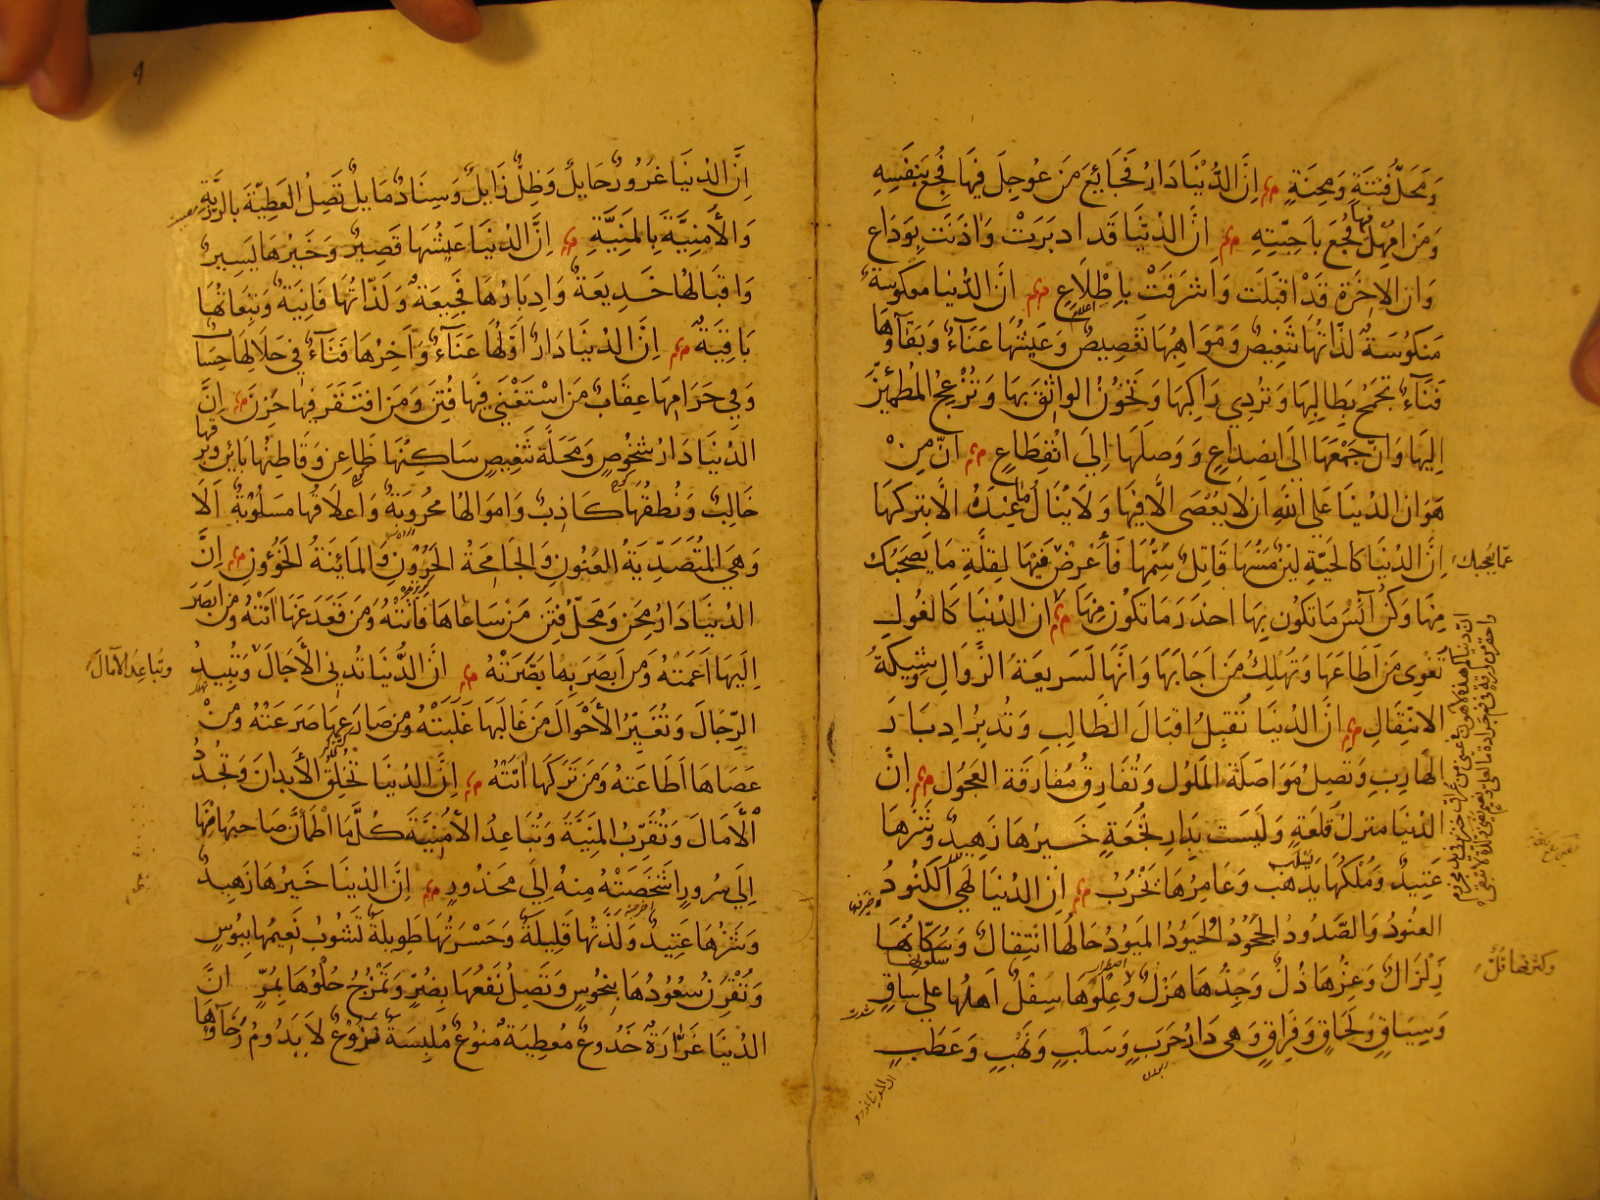 وَمَحَلُّ فِتْنَةٍ وَمِحنَةٍ اِنَّ الدُّنْيَا دَارُ فَجَائِعَ مَن عُوجِلَ فِيهَا فُجِعَ بِنَفْسِهِ
وَمَن اُمْهِلَ فيها فُجِعَ بِاَحِبَّتِهِ اِنَّ الدُنيَا قَد ادبَرَتْ وَاذَنَت بِوَدَاعٍ
وَان الاخِرَة قَدْ اَقْبَلَت وَاشرَفَتْ بِاِطِّلَاعٍ انَّ الدُّنيا معكوسَةٌ
مَنكُوسَةٌ لذَّاتُهَا تنغِيصٌ وَمَوَاهِبُهَا تغصِيصٌ وَعَيشُهَا عَنَاءٌ وَبَقَاؤُهَا
فَنَاءٌ تجمَحُ بِطَالِبِهَا وَتُردِي رَاكِبهَا وَتَخُونُ الواثِقَ بهَا وَتُزْعِجُ المُطْمَئِنَّ
اِلَيهَا وَانَّ جَمْعَهَا الَى انصدَاعٍ وَوَصلَهَا اِلَى انْقِطَاعٍ انَّ مِنْ
هَوَان الدنيَا عَلى اللهِ ان لَا يُعْصَى الَّا فِيهَا وَلَا يُنَالُ مَا عِندَهُ الَّا بِتركهَا
اِنَّ الدُنيَا كالحَيَّةِ لَيِّنٌ مَسُّهَا قَاتِلٌ سَمُّهَا فَاَعْرِضْ عمَّا يُعجبك فِيهَا لِقلَّةِ مَا يَصحَبُك
مِنهَا وَكُن آنَسَ مَا تكون بِهَا احذَرَ مَا تكون مِنهَا ان الدُنيَا كَالغُولِ
تُغْوِى مَن اَطَاعَهَا وَتُهلِكُ مَن اَجَابَهَا وَانَّهَا لَسَرِيعَةُ الزَّوَالِ وَشِيكَةُ
الانْتِقَالِ انَّ الدُنيَا تُقبِلُ اقبَالَ الطَالِبِ وَتُدبِرُ ادبَارَ
الهَارِبِ وَتَصِلُ مُوَاصَلَةَ المَلُولِ وَتُفَارِقُ مُفَارَقَةَ العَجُول اِنَّ
الدنيَا منزلُ قُلْعَةٍ وَلَيسَت بِدَارِ نُجْعَةٍ خَيرُهَا زَهِيدٌ وَشَرُّهَا
عَتِيدٌ وَمُلكُهَا يُسْلَبُ وَعَامِرُهَا يَخْرُبُ اِن الدُنيَا لَهِيَ الكَنُودُ
العَنُودُ وَالصَّدُودُ الجَحُودُ الحَيُودُ المَيُودُ حَالُهَا انْتِقَالٌ وَسُكُونُهَا
زِلْزَالٌ وَعِزُّهَا ذُلٌّ وَجِدُّهَا هَزْلٌ وَعُلوُّها سِفْلٌ اَهلُهَا عَلى ساقٍ
وَسِيَاقٍ وَلَحَاقٍ وَفِرَاقٍ وَهِى دَارُ حَرَبٍ وَسَلَبٍ وَنَهْبٍ وَعَطَبٍ
اِنَّ الدُنْيَا غَرُورٌ حَايِلٌ وَظِلٌّ زَايِلٌ وَسِنَادٌ مَايِلٌ تَصِلُ العَطِيَّةَ بالرَّزِيَّةِ
وَالأُمنِيَّةَ بِالمَنِيَّةِ اِنَّ الدُنيَا عَيشُهَا قَصِيرٌ وَخَيرُهَا يَسِيرٌ
وَاقبَالُهَا خَدِيعَةٌ وَاِدبَارُهَا فَجِيعَةٌ وَلَذَّاتُهَا فَانِيَةٌ وَتَبِعَاتُهَا
بَاقِيَةٌ اِنَّ الدُنيَا دَارٌ اَوَّلُهَا عَنَآءٌ وَآخِرُهَا فَنَآءٌ فِي حَلَالِهَا حِسَابٌ
وَفِي حَرَامِهَا عِقَابٌ مَن اسْتَغْنَى فِيهَا فُتِنَ وَمَن افتَقَرَ فِيهَا حَزِنَ اِنَّ
الدُنيَا دَارُ شُخُوصٍ وَمَحَلَّةُ تَنْغِيصٍ سَاكِنُهَا ظَاعِنٌ وَقَاطِنُهَا بَائِنٌ وَبَرقُها
خَالِبٌ وَنُطقُهَا كَاذِبٌ وَاموَالُهَا مَحْرُوبَةٌ وَاَعلَاقُهَا مَسلُوبَةٌ اَلَا
وَهِيَ المُتَصَدِّيَةُ العَنُونِ وَالجَامِحَةُ الحَرُونِ وَالمَائِنَةُ الخَؤُونِ اِنَّ
الدنيَا دَارُ مِحَنٍ وَمَحَلُّ فِتَنٍ مَنْ سَاعَاهَا فَاتَتْهُ وَمَن قَعَدَ عَنهَا اَتَتْهُ وَمَن اَبصَرَ
اِلَيهَا اَعمَتْهُ وَمَن اَبصَرَ بِهَا بَصَّرَتْهُ انَّ الدُّنيَا تُدنِي الآجَالَ وتُبَاعِدُ الآمَالَ وَتُبِيدُ
الرِّجَالَ وَتُغَيِّرُ الأَحْوَالَ مَن غَالَبَهَا غَلَبَتْهُ وَمن صَارَعهَا صَرَعَتْهُ وَمَنْ
عَصَاهَا اَطَاعَتهُ وَمَن تَرَكَهَا اَتَتْهُ اِنَّ الدُنيَا تُخْلِقُ الأَبدَانَ وَتُجَدِّدُ
الآمَالَ وَتُقَرِّبُ المَنِيَّةَ وَتُبَاعِدُ الأُمْنِيَّةَ كُلَّمَا اطْمَأَنَّ صَاحبهَا مِنْهَا
اِلَى سُرُورٍ اشْخَصَتْهُ مِنهُ اِلَى مَحذُورٍ اِنَّ الدُنيَا خَيرُهَا زَهِيدٌ
وَشَرُّهَا عَتِيدٌ وَلَذَّتُهَا قَلِيلَةٌ وَحَسْرَتُهَا طَوِيلَةٌ تَشُوبُ نَعِيمهَا بِبُوسٍ
وَتَقْرِنُ سُعُودهَا بِنُحُوسٍ وَتَصِلُ نَفعُهَا بِضُرٍّ وَتَمْزُجُ حُلْوهَا بِمُرٍّ انَّ
الدُنيَا غَرَّارَةٌ خَدُوعٌ مُعطِيَةٌ مَنُوعٌ مُلبِسَةٌ نَزُوعٌ لَا يَدُومُ رَخَآؤُهَا